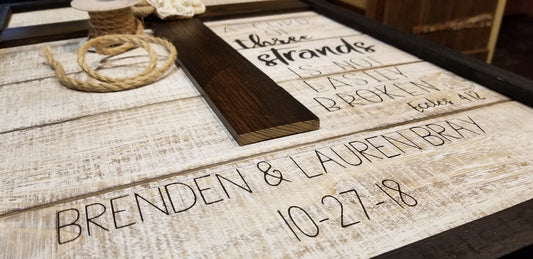 A CORD
OF
three
strands
IS NOT
EASILY
BROKEN
Eccles. 4:12
BRENDEN & LAUREN BRAY
10-27-18